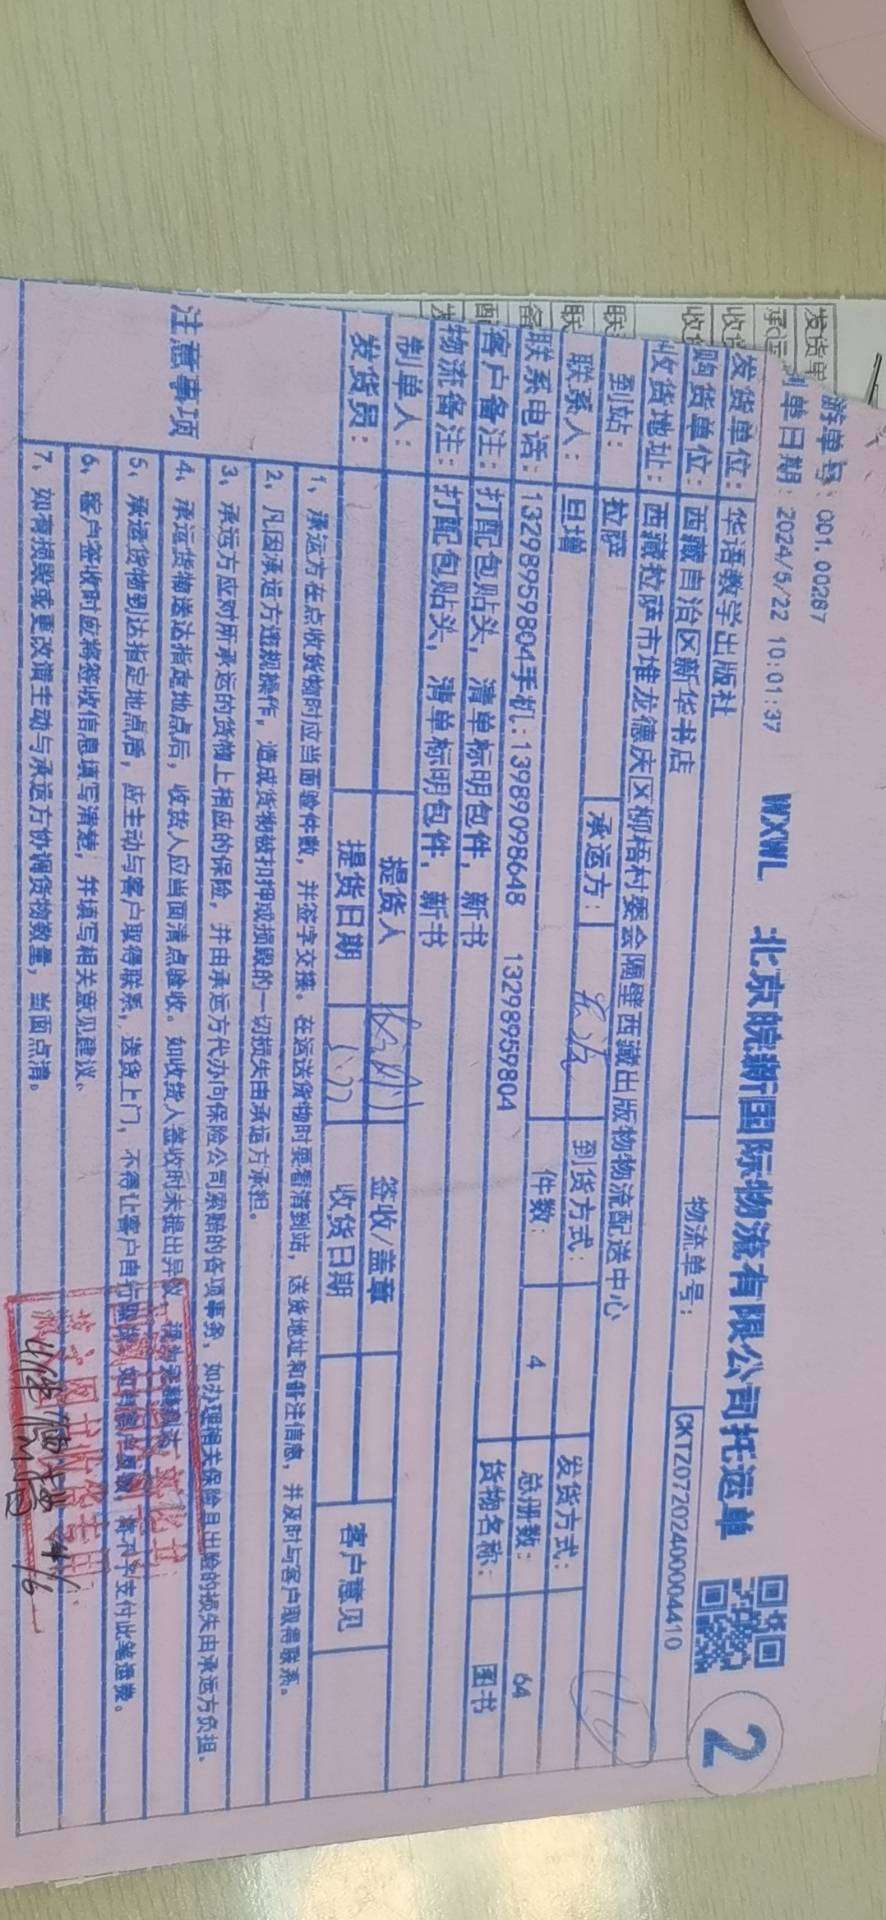 游单号：001.00287
制单日期：2024/5/22 10:01:37
WXWL 北京皖新国际物流有限公司托运单
2
发货单位：华语教学出版社
物流单号：CKTZ0720240004410
购货单位：西藏自治区新华书店
收货地址：西藏拉萨市堆龙德庆区柳梧村委会隔壁西藏出版物物流配送中心
到站：拉萨 承运方： 到货方式： 发货方式：
联系人：旦增 件数：4 总册数：64
联系电话：13298959804手机:13989098648 13298959804 货物名称：图书
客户备注：打配包贴头，清单标明包件，新书
物流备注：打配包贴头，清单标明包件，新书
制单人： 提货人 签收/盖章 客户意见
发货员： 提货日期 收货日期
注意事项
1、承运方在点收货物时应当面验件数，并签字交接。在运送货物时要看清到站，送货地址和备注信息，并及时与客户取得联系。
2、凡因承运方违规操作，造成货物被扣押或损毁的一切损失由承运方承担。
3、承运方应对所承运的货物上相应的保险，并由承运方代办向保险公司索赔的各项事务，如办理相关保险且出险的损失由承运方负担。
4、承运货物送达指定地点后，收货人应当面清点验收。如收货人签收时未提出异议，
5、承运货物到达指定地点后，应主动与客户取得联系，送货上门，不得让客户自行 支付此笔运费。
6、客户签收时应将签收信息填写清楚，并填写相关意见建议、
7、如有损毁或更改请主动与承运方协调货物数量，当面点清。
发货单
承运
收货
收货
联
联
备
配
发